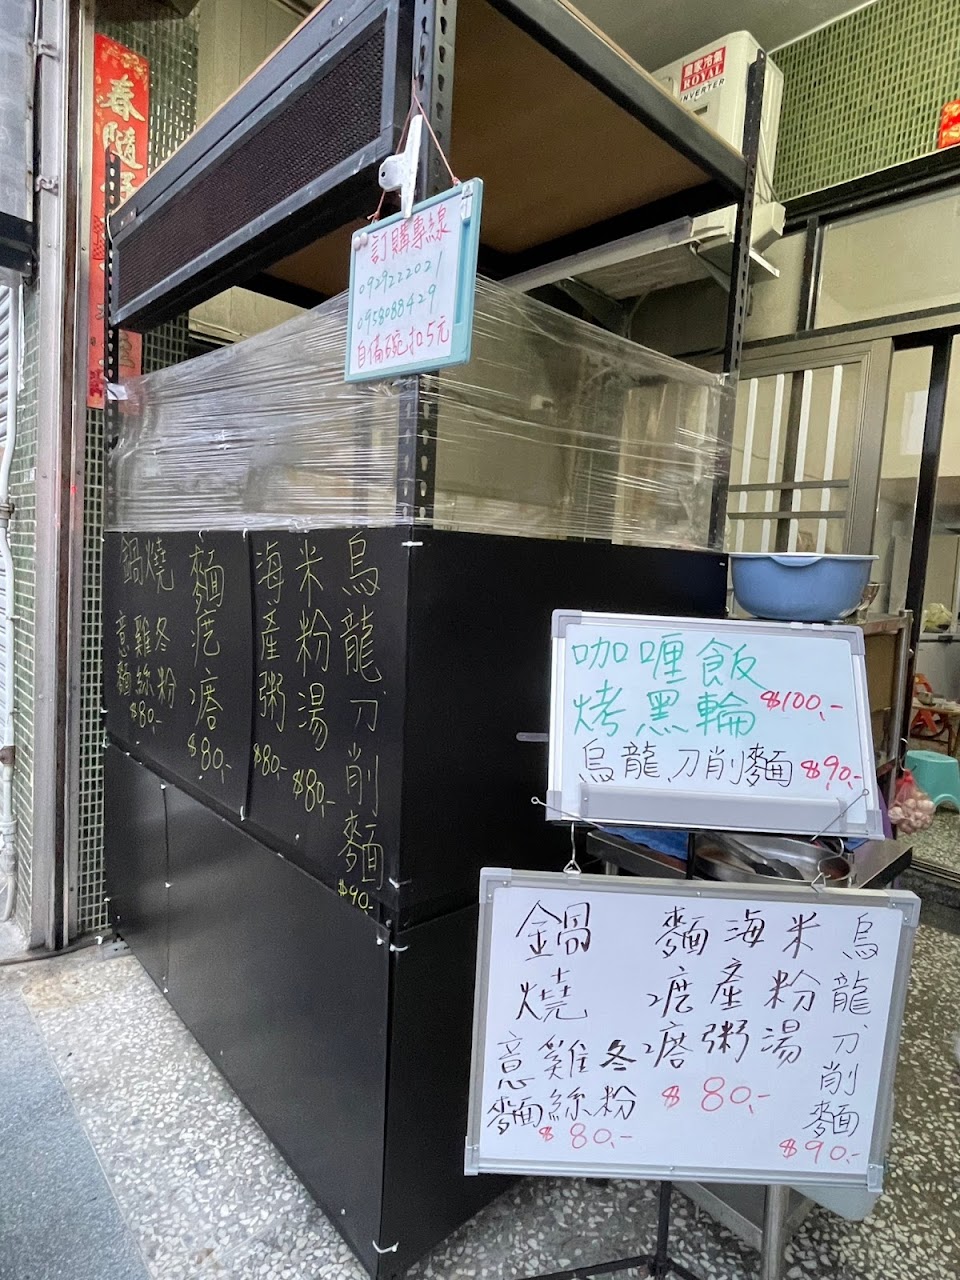 春隨
國家冷氣
ROYAL
INVERTER
訂購專線
0929222021
0958088429
自備碗扣5元
鍋燒
意麵
雞絲
冬粉
$80.-
麵疙瘩
$80.-
海產粥
$80.-
米粉湯
$80.-
烏龍刀削麵
$90.-
咖哩飯
烤黑輪 $100.-
烏龍刀削麵 $90.-
鍋燒
意麵
雞絲
冬粉
$80.-
麵疙瘩
海產粥
米粉湯
$80.-
烏龍刀削麵
$90.-